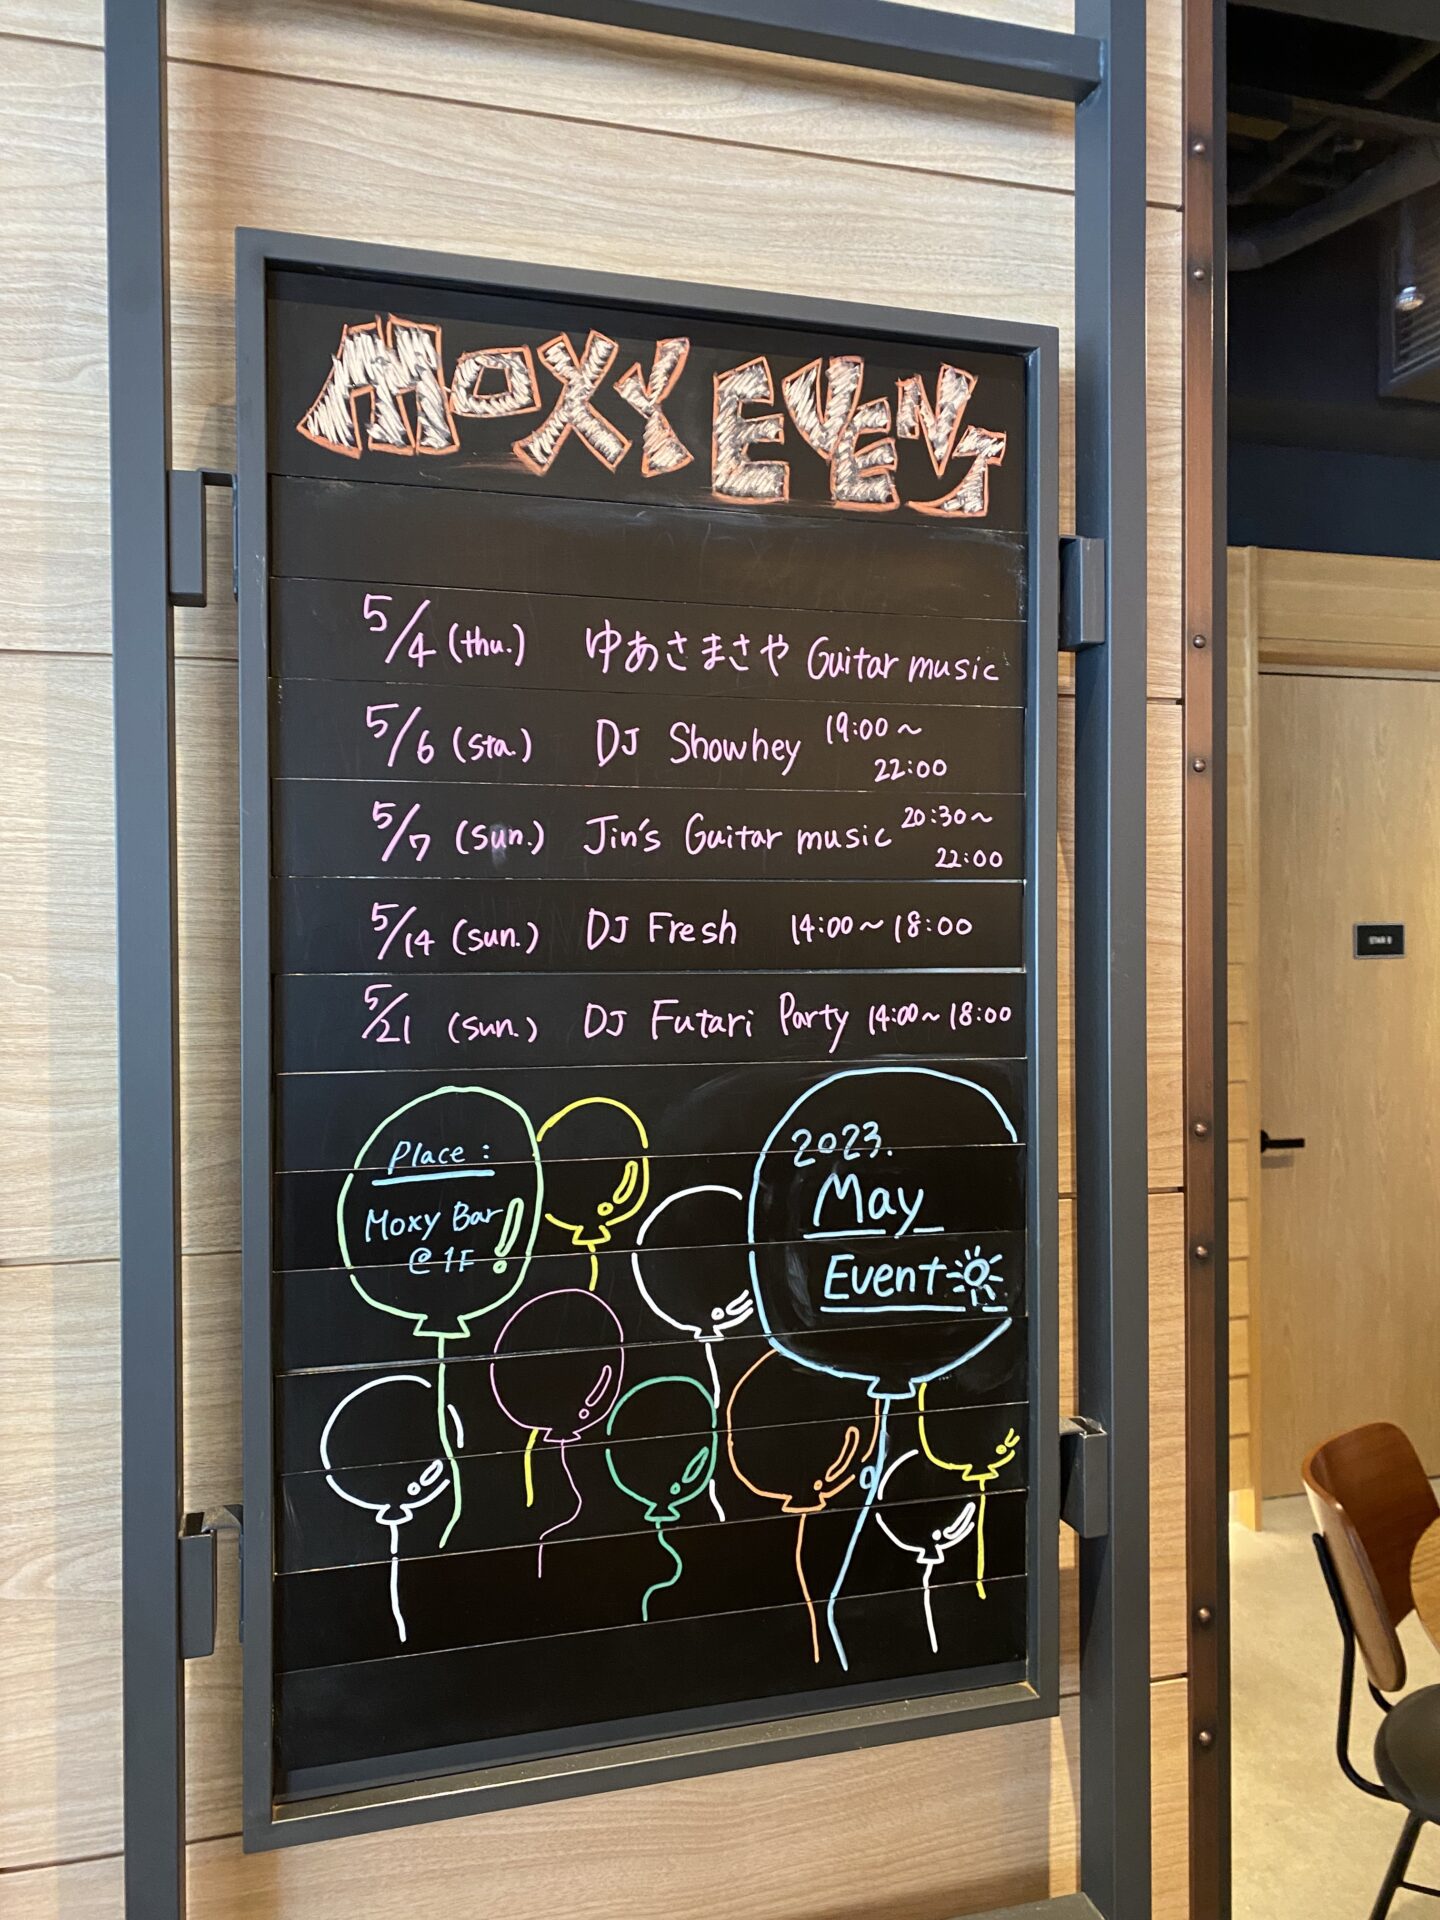 MOXY EVENT
5/4 (thu.) ゆあさまさや Guitar music
5/6 (sta.) DJ Showhey 19:00~
22:00
5/7 (sun.) Jin's Guitar music 20:30~
22:00
5/14 (sun.) DJ Fresh 14:00~18:00
5/21 (sun.) DJ Futari Party 14:00~18:00
Place:
Moxy Bar
@1F
2023.
May
Event